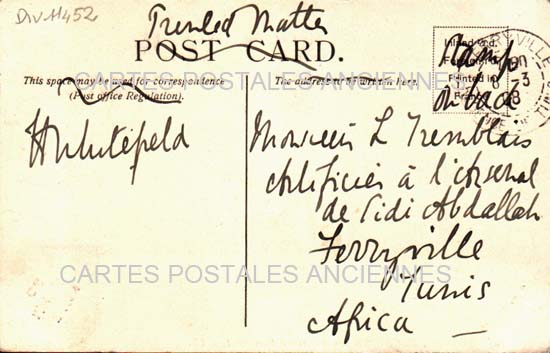 Div.11452
Printed Matter
POST CARD.
This space may be used for correspondence
(Post office Regulation).
The address only to be written here.
Inland ½d.
Foreign 1d.
Printed in
Stamp
on back
H Whitefield
Monsieur L Tremblais
Artificier à l'Arsenal
de Sidi Abdallah
Ferryville
Tunis
Africa
CARTES POSTALES ANCIENNES
CARTES POSTALES ANCIENNES